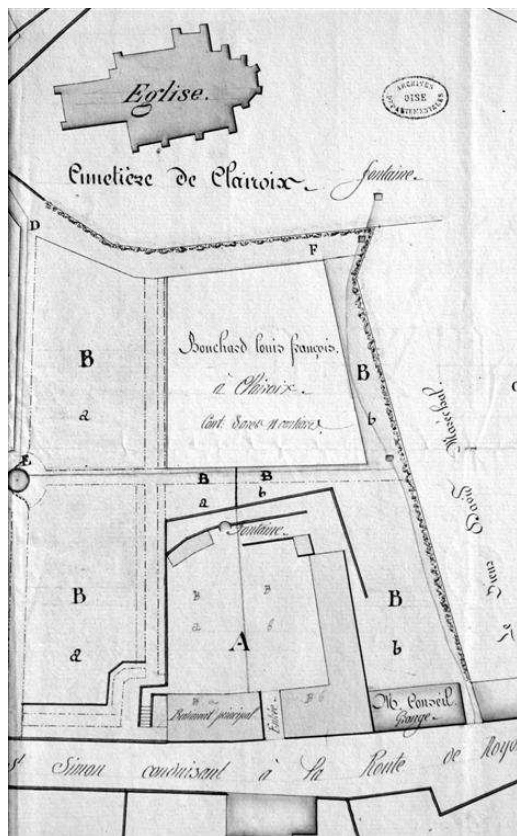 Eglise.
ARCHIVES
OISE
DÉPARTEMENTALES
Cimetière de Clairoix.
fontaine.
D
F
B
a
Bouchard louis françois.
à Clairoix.
Cont.
B
b
Maréchal.
E
B
a
B
b
fontaine
B
a
B
a
B
b
A
B
b
B a
Batiment principal
Entrée
B b
M. Conseil
Grange.
St Simon conduisant à la Route de Noyo